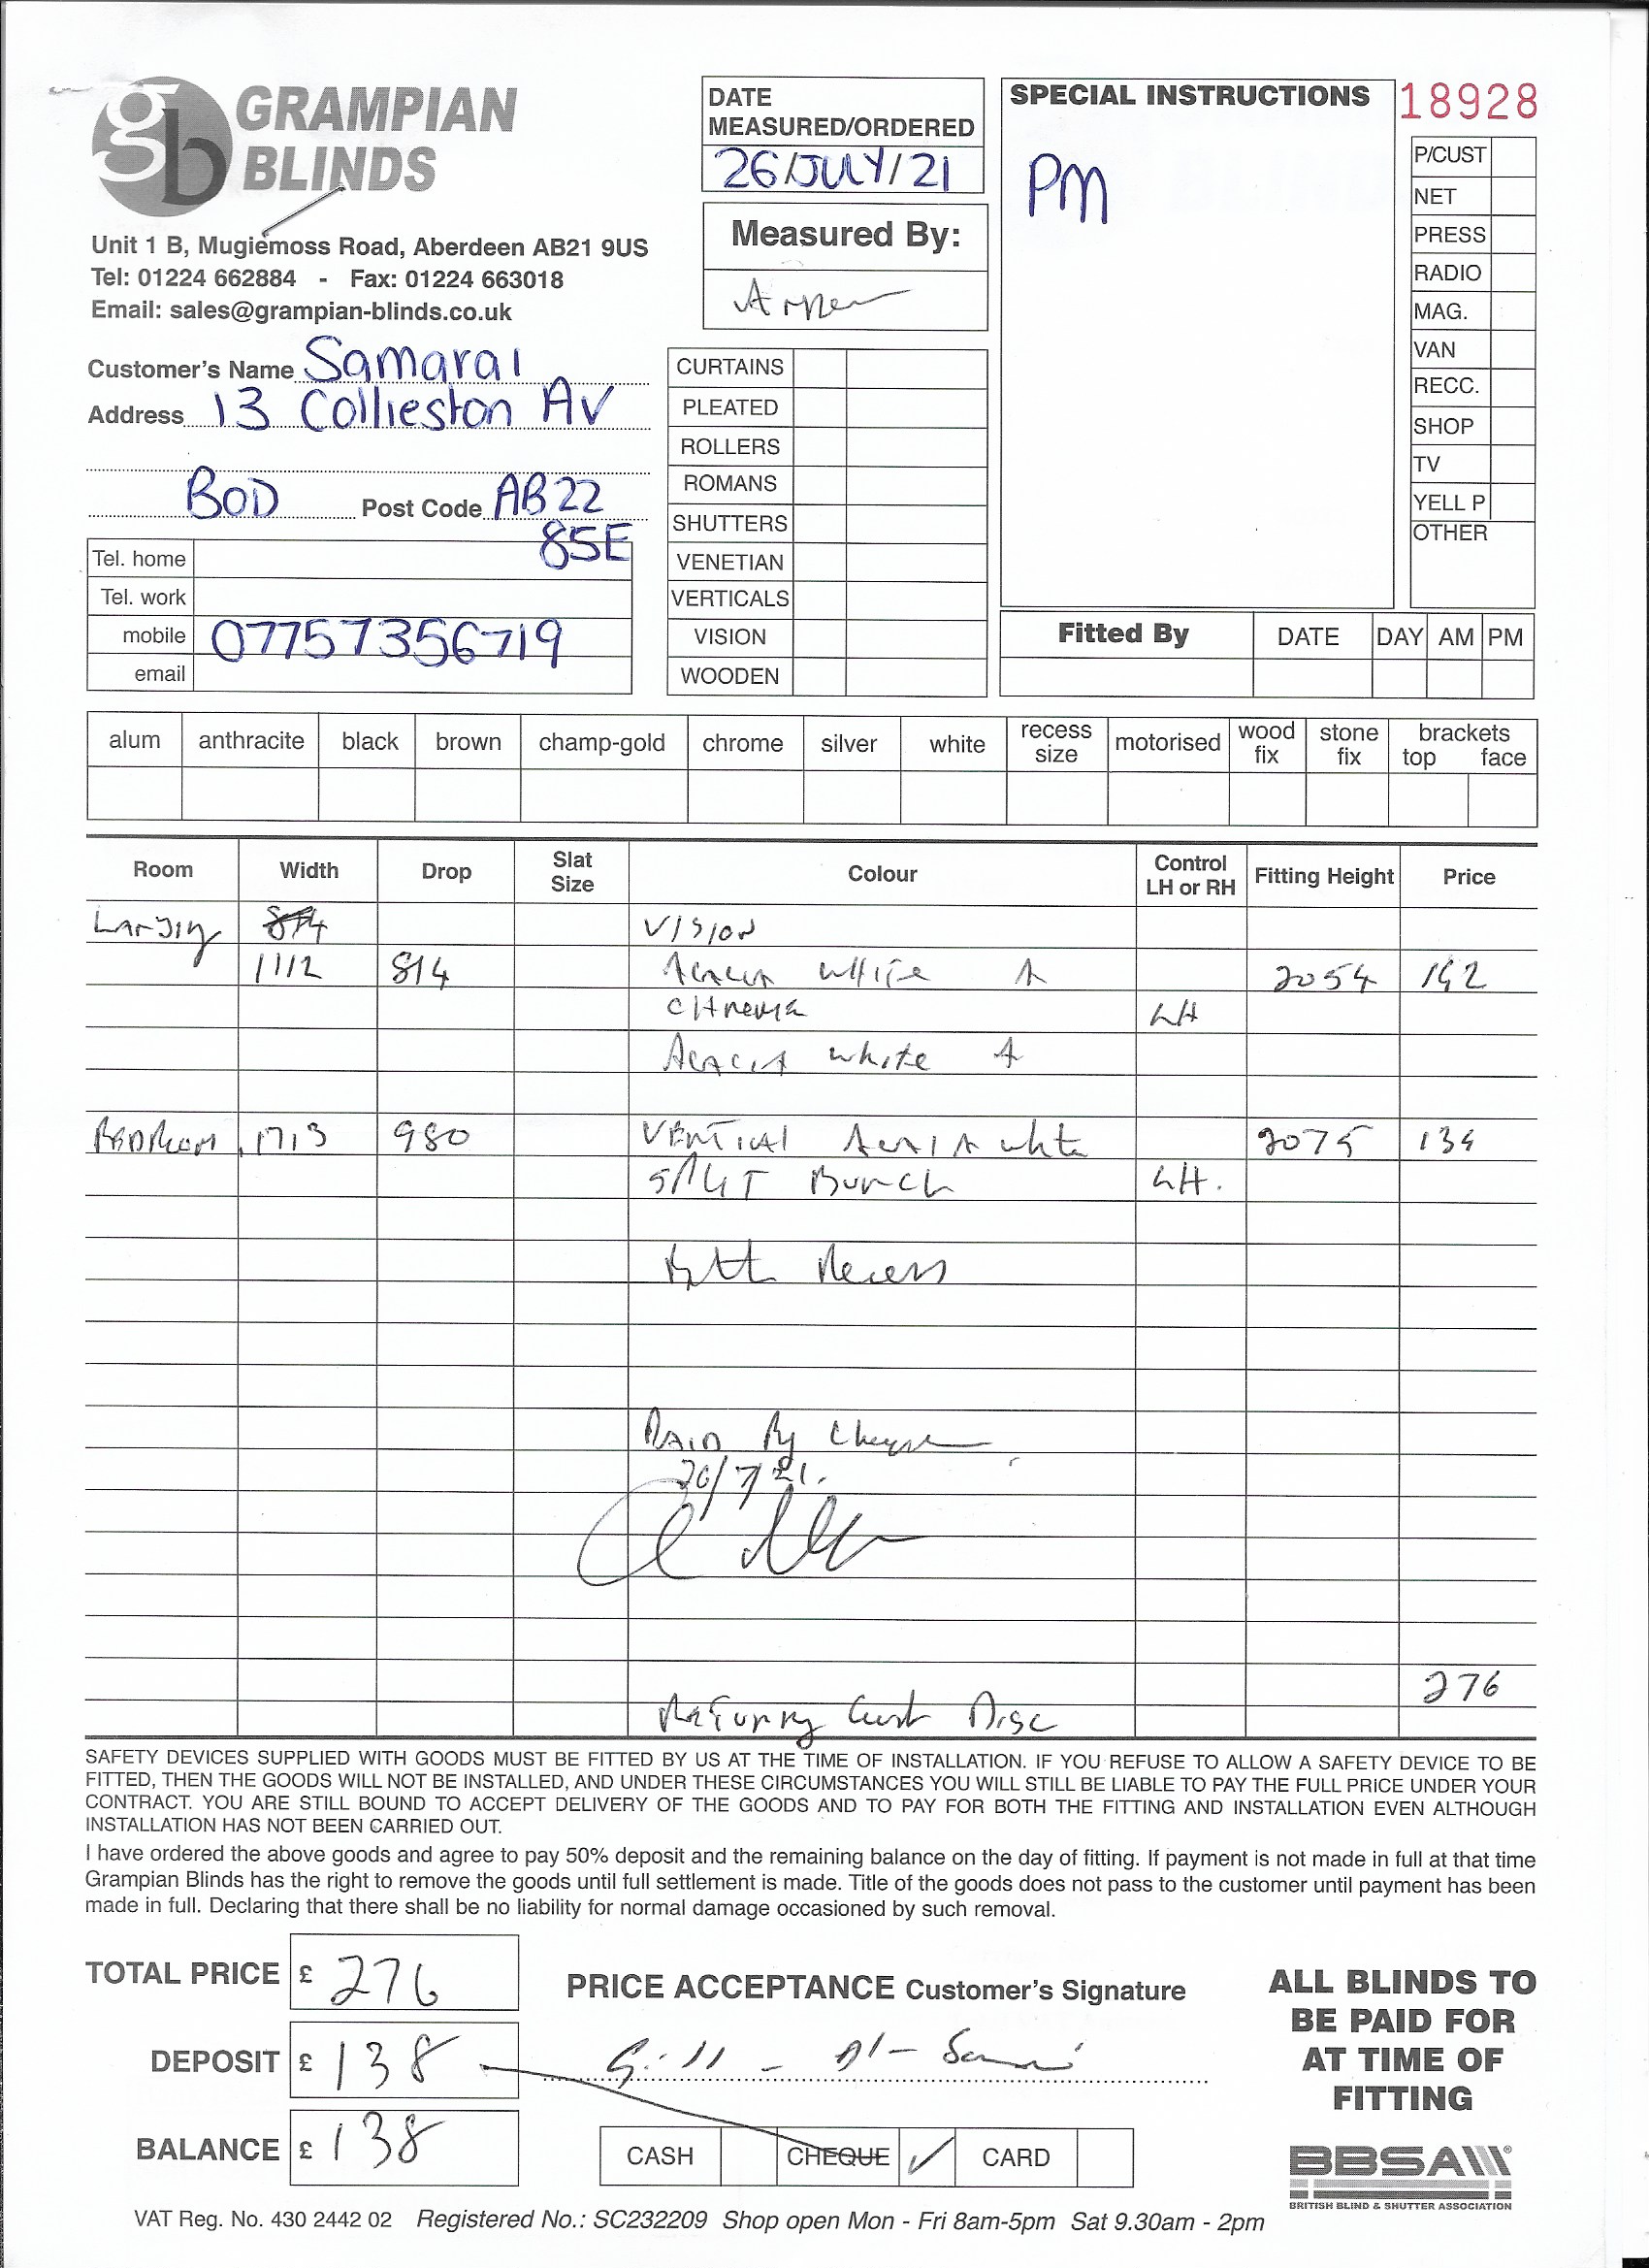 gb GRAMPIAN
BLINDS
Unit 1 B, Mugiemoss Road, Aberdeen AB21 9US
Tel: 01224 662884 - Fax: 01224 663018
Email: sales@grampian-blinds.co.uk
DATE
MEASURED/ORDERED
26/JULY/21
Measured By:
SPECIAL INSTRUCTIONS
PM
18928
P/CUST
NET
PRESS
RADIO
MAG.
VAN
RECC.
SHOP
TV
YELL P
OTHER
Customer's Name Samarai
Address 13 Collieston Av
BOD Post Code AB22
8SE
Tel. home
Tel. work
mobile 07757356719
email
CURTAINS
PLEATED
ROLLERS
ROMANS
SHUTTERS
VENETIAN
VERTICALS
VISION
WOODEN
Fitted By DATE DAY AM PM
alum anthracite black brown champ-gold chrome silver white recess size motorised wood fix stone fix brackets top face
Room Width Drop Slat Size Colour Control LH or RH Fitting Height Price
Landing 814 VISION
1112 814 Acacia white A 2054 142
chrome LH
Acacia white A
Bedroom 1713 980 VERTICAL Acacia white 2075 134
SPLIT Bunch LH.
Both Recess
PAID By Cheque
26/7/21.
276
Returning Cust Disc
SAFETY DEVICES SUPPLIED WITH GOODS MUST BE FITTED BY US AT THE TIME OF INSTALLATION. IF YOU REFUSE TO ALLOW A SAFETY DEVICE TO BE
FITTED, THEN THE GOODS WILL NOT BE INSTALLED, AND UNDER THESE CIRCUMSTANCES YOU WILL STILL BE LIABLE TO PAY THE FULL PRICE UNDER YOUR
CONTRACT. YOU ARE STILL BOUND TO ACCEPT DELIVERY OF THE GOODS AND TO PAY FOR BOTH THE FITTING AND INSTALLATION EVEN ALTHOUGH
INSTALLATION HAS NOT BEEN CARRIED OUT.
I have ordered the above goods and agree to pay 50% deposit and the remaining balance on the day of fitting. If payment is not made in full at that time
Grampian Blinds has the right to remove the goods until full settlement is made. Title of the goods does not pass to the customer until payment has been
made in full. Declaring that there shall be no liability for normal damage occasioned by such removal.
TOTAL PRICE £ 276
DEPOSIT £ 138
BALANCE £ 138
PRICE ACCEPTANCE Customer's Signature
CASH CHEQUE ✓ CARD
ALL BLINDS TO
BE PAID FOR
AT TIME OF
FITTING
BBSA
BRITISH BLIND & SHUTTER ASSOCIATION
VAT Reg. No. 430 2442 02 Registered No.: SC232209 Shop open Mon - Fri 8am-5pm Sat 9.30am - 2pm